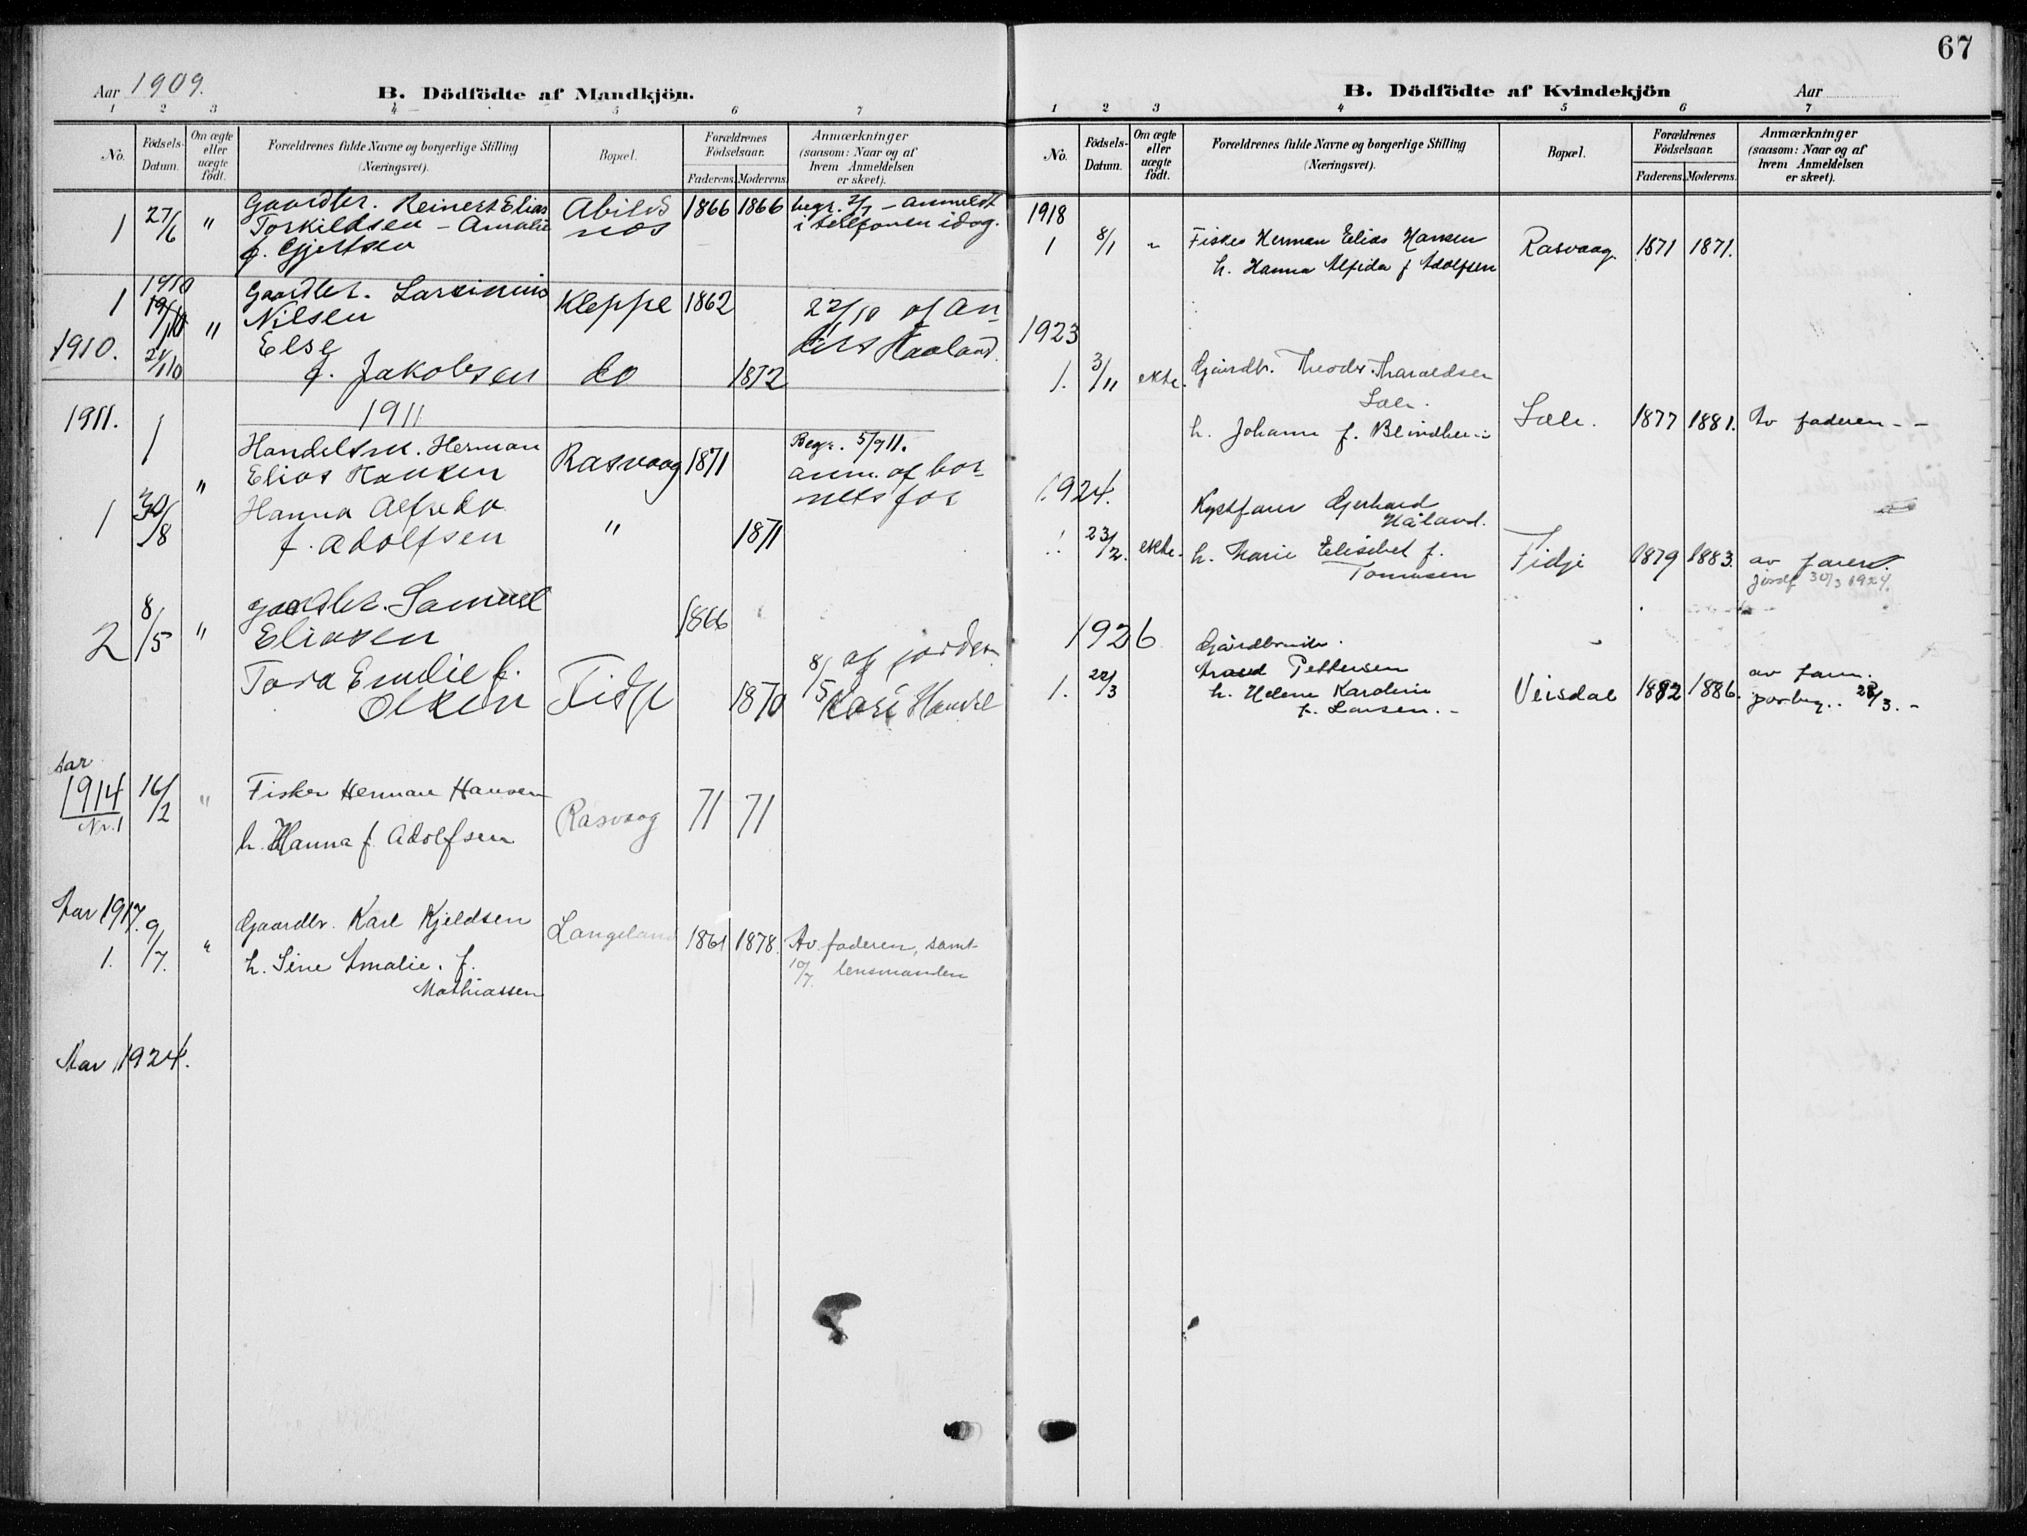 67
Aar 1909.
B. Dödfödte af Mandkjön.
1 2 3 4 5 6 7
No.
Födsels-Datum.
Om ægte eller uægte födt.
Forældrenes fulde Navne og borgerlige Stilling (Næringsvei).
Bopæl.
Forældrenes Födselsaar.
Faderens. Moderens.
Anmærkninger (saasom: Naar og af hvem Anmeldelsen er skeet).
1 27/6 " Gaardbr. Reinert Elias Abilds 1866 1866 begr. 2/7 - anmeldt
Torkildsen - Amalie nes i telefonen idag.
f. Gjertsen
1910
1 19/10 " Gaardbr. Kleppe 1862 22/10 af An-
Nilsen ders Haaland.
1910. 21/10 Else
f. Jakobsen do 1872
1911. 1911
1 Handelsm. Herman Rasvaag 1871 Begr. 5/9 11.
" Elias Hansen anm. af bar-
1 30/8 Hanna Alfreda " 1871 nets far
f. Adolfsen
2 8/5 " Gaardbr. Samuel 1866
Eliasen
Tora Emilie f. Fidje 1870 8/5 af jordem.
Olsen
Aar
1914 16/2 " Fisker Herman Hansen Rasvaag 71 71
Nr. 1
h. Hanna f. Adolfsen
Aar 1917.
1. 9/7. " Gaardbr. Karl Kjeldsen Langeland 1861 1878. Av faderen, samt
h. Sine Amalie. f. 10/7. lensmanden
Mathiassen
Aar 1924.
B. Dödfödte af Kvindekjön
Aar
1 2 3 4 5 6 7
No.
Födsels-Datum.
Om ægte eller uægte födt.
Forældrenes fulde Navne og borgerlige Stilling (Næringsvei).
Bopæl.
Forældrenes Födselsaar.
Faderens. Moderens.
Anmærkninger (saasom: Naar og af hvem Anmeldelsen er skeet).
1918
1 8/1 " Fisker Herman Elias Hansen Rasvaag. 1871 1871.
h. Hanna Alfida f Adolfsen
1923
1. 3/11 ekte. Gaardbr. Theodor Tharaldsen
Sæle.
h. Johanne f. Sæle. 1877 1881. Av faderen - -
1924. Gerhard
Håland.
1. 23/2. ekte. h. Marie Elisabet f. Fidje 1879 1883. av faren.
Tønnesen jordf. 30/3 1924.
1926 Gårdbruker
Pettersen
1. 22/3 h. Helene Karoline Veisdal 1882 1886. av faren.
f. Larsen. - 28/3. -